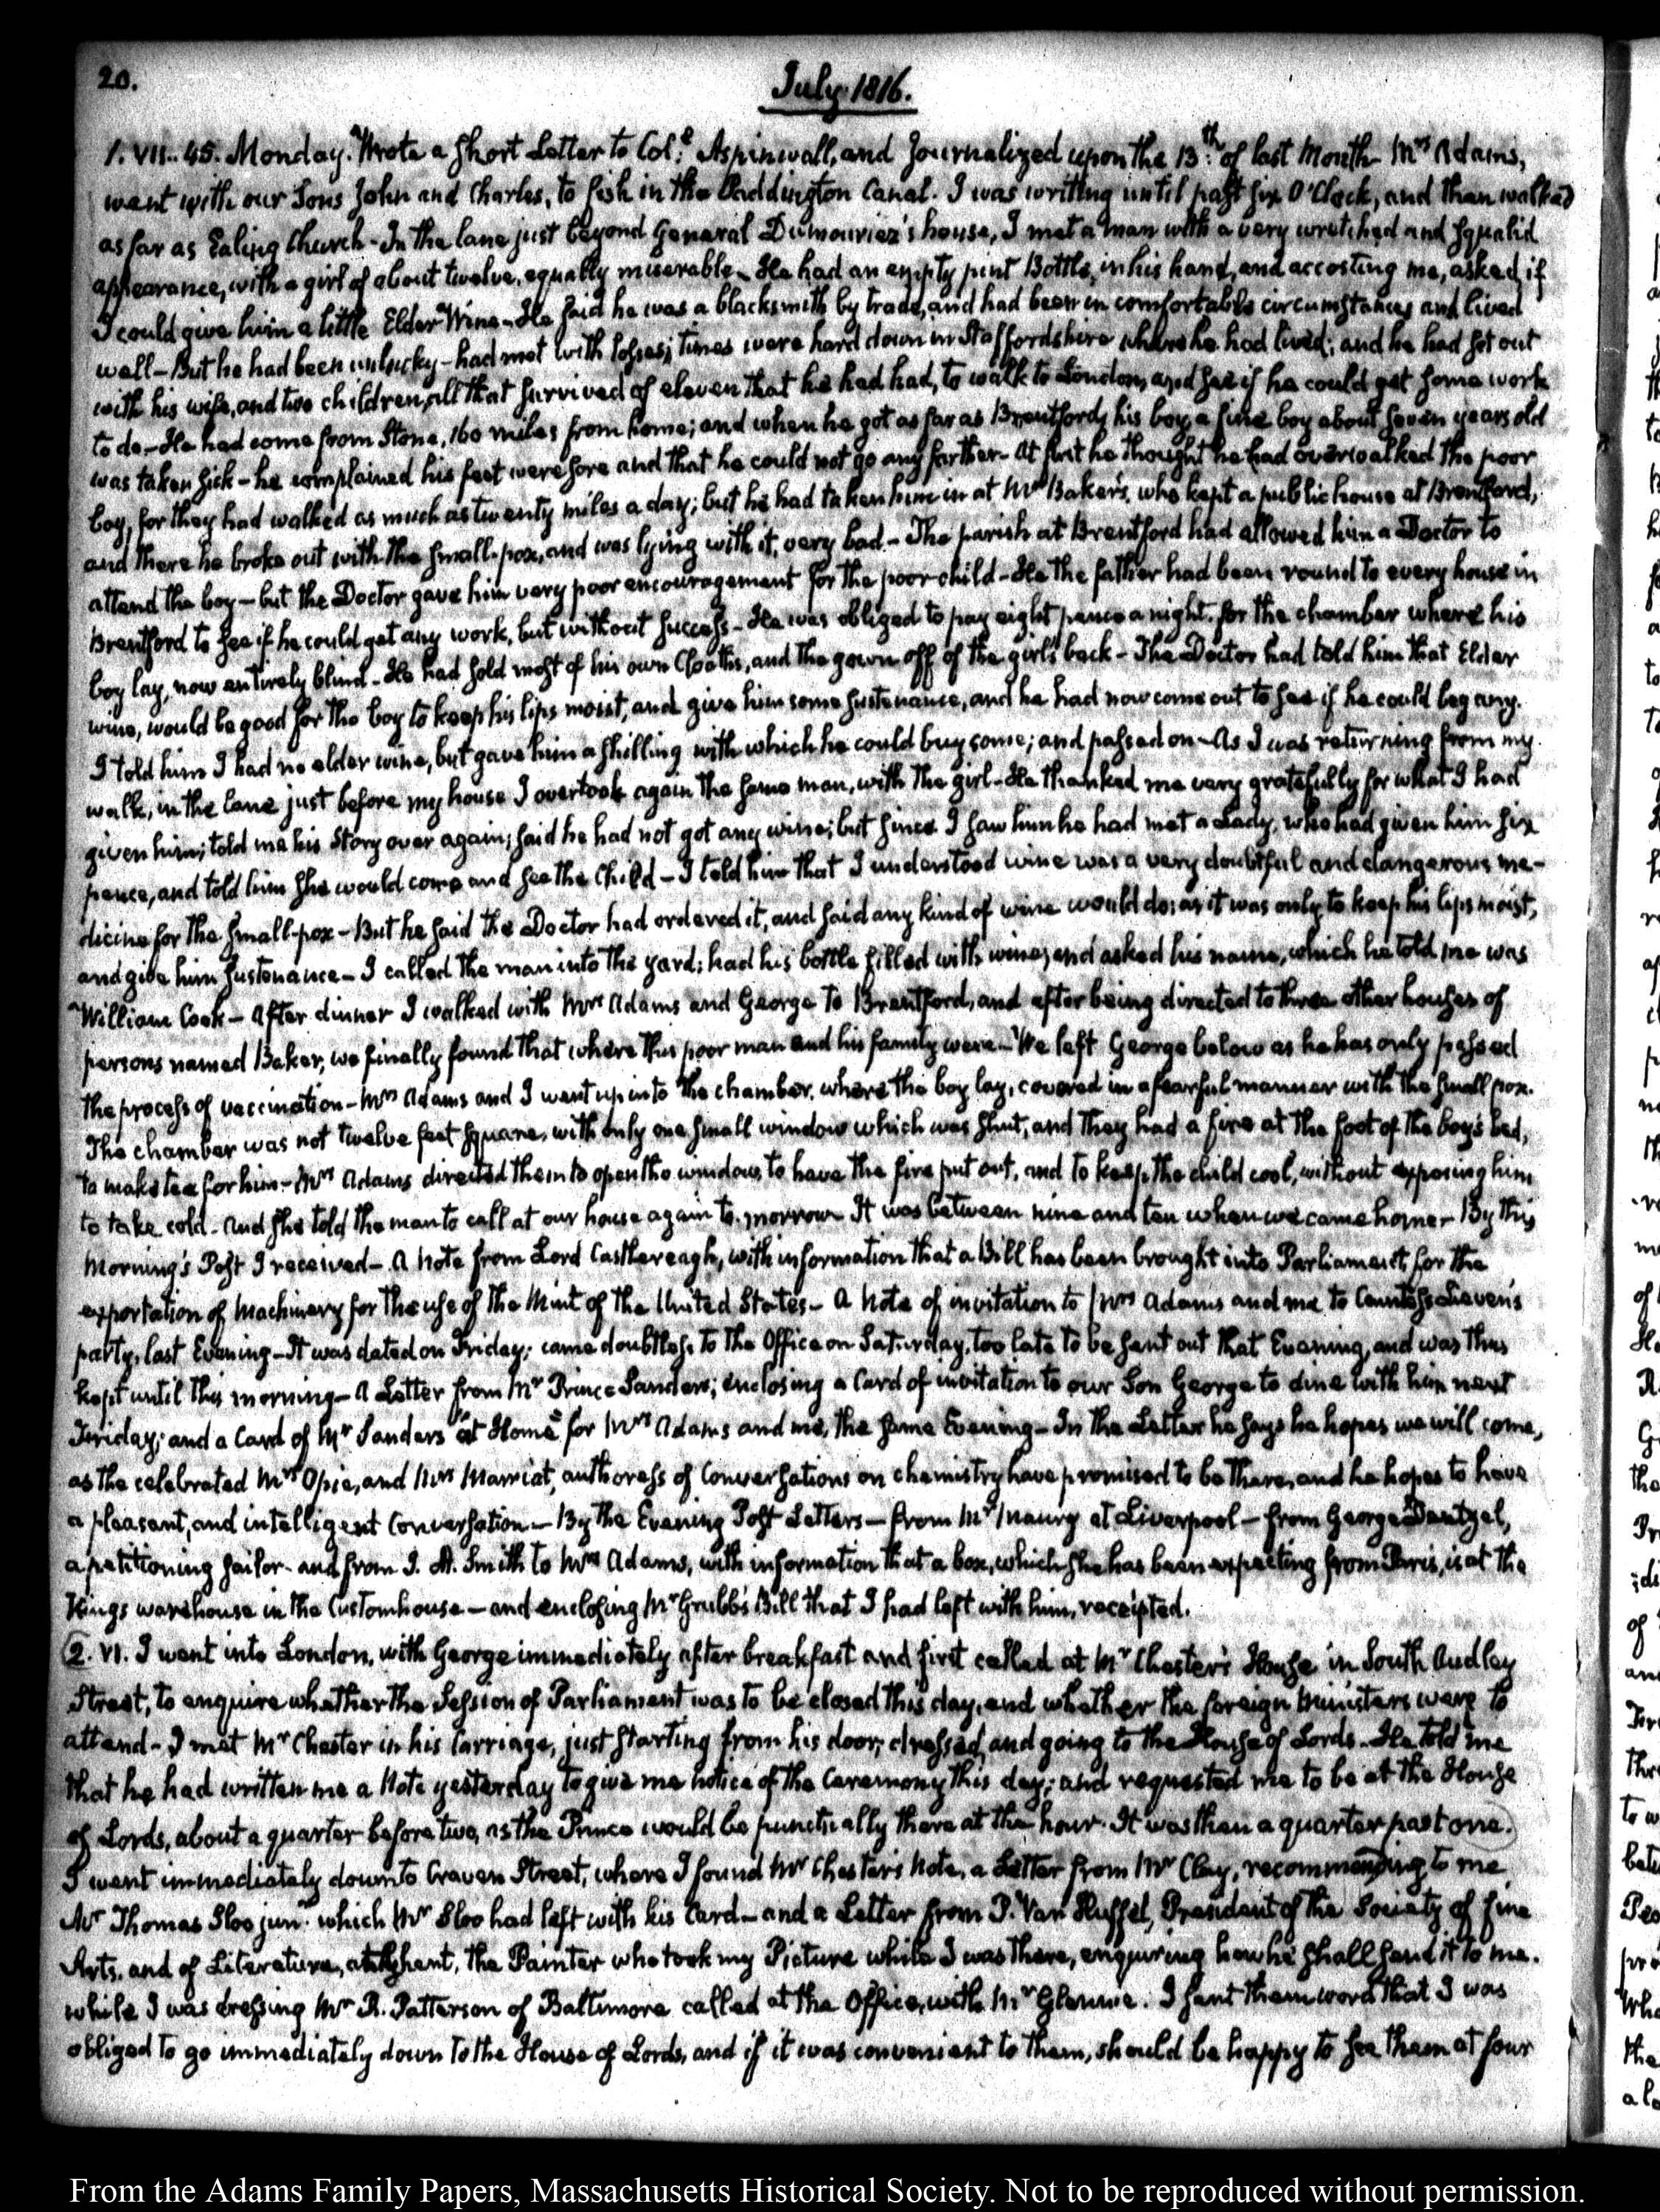 20.
July. 1816.
1. VII.. 45. Monday. Wrote a short Letter to Col:l Aspinwall, and Journalized upon the 13:th of last Month. Mrs Adams,
went with our Sons John and Charles, to fish in the Paddington Canal. I was writing until past six O'Clock, and then walked
as far as Ealing Church - In the lane just beyond General Dumouriez's house, I met a man with a very wretched and squalid
appearance, with a girl of about twelve, equally miserable - He had an empty pint Bottle, in his hand, and accosting me, asked, if
I could give him a little Elder Wine - He said he was a blacksmith by trade, and had been in comfortable circumstances and lived
well - But he had been unlucky - had met with losses; times were hard down in Staffordshire where he had lived; and he had set out
with his wife, and two children, all that survived of eleven that he had had, to walk to London, and see if he could get some work
to do - He had come from Stone, 160 miles from home; and when he got as far as Brentford, his boy, a fine boy about seven years old
was taken sick - he complained his feet were sore and that he could not go any farther - At first he thought he had overwalked the poor
boy, for they had walked as much as twenty miles a day; but he had taken him in at Mrs Baker's, who kept a public house at Brentford,
and there he broke out with the small-pox, and was lying with it, very bad. - The parish at Brentford had allowed him a Doctor to
attend the boy - but the Doctor gave him very poor encouragement for the poor child - He the father had been round to every house in
Brentford to see if he could get any work, but without success - He was obliged to pay eight pence a night for the chamber where his
boy lay, now entirely blind - He had sold most of his own Cloaths, and the gown off of the girl's back - The Doctor had told him that Elder
wine, would be good for the boy to keep his lips moist, and give him some sustenance, and he had now come out to see if he could beg any.
I told him I had no elder wine, but gave him a shilling with which he could buy some; and passed on - As I was returning from my
walk, in the lane just before my house I overtook again the same man, with the girl - He thanked me very gratefully for what I had
given him; told me his story over again; said he had not got any wine; but since I saw him he had met a Lady, who had given him six
pence, and told him she would come and see the Child - I told him that I understood wine was a very doubtful and dangerous me-
dicine for the small-pox - But he said the Doctor had ordered it, and said any kind of wine would do; as it was only to keep his lips moist,
and give him sustenance - I called the man into the yard; had his bottle filled with wine, and asked his name, which he told me was
William Cook - After dinner I walked with Mrs Adams and George to Brentford, and after being directed to three other houses of
persons named Baker, we finally found that where this poor man and his family were - We left George below as he has only passed
the process of vaccination - Mrs Adams and I went up into the chamber, where the boy lay, covered in a fearful manner with the small pox.
The chamber was not twelve feet square, with only one small window which was shut, and they had a fire at the foot of the boy's bed,
to make tea for him - Mrs Adams directed them to open the window, to have the fire put out, and to keep the child cool, without exposing him
to take cold - And she told the man to call at our house again to-morrow. It was between nine and ten when we came home - By this
Morning's Post I received - A Note from Lord Castlereagh, with information that a Bill has been brought into Parliament for the
exportation of Machinery for the use of the Mint of the United States - A Note of invitation to Mrs Adams and me to Countess Lieven's
party, last Evening - It was dated on Friday; came doubtless to the Office on Saturday, too late to be sent out that Evening, and was thus
kept until this morning - A Letter from Mr Prince Sanders; enclosing a Card of invitation to our Son George to dine with him next
Friday; and a Card of Mr Sanders "at Home" for Mrs Adams and me, the same Evening - In the Letter he says he hopes we will come,
as the celebrated Mrs Opie, and Mrs Marriat, authoress of Conversations on chemistry have promised to be there, and he hopes to have
a pleasant, and intelligent Conversation - By the Evening Post Letters - from Mr Maury at Liverpool - from George Dantzel,
a petitioning sailor - and from J. A. Smith to Mrs Adams, with information that a box, which she has been expecting from Paris, is at the
Kings warehouse in the Customhouse - and enclosing Mr Grubb's Bill that I had left with him, receipted.
2. VI. I went into London, with George immediately after breakfast and first called at Mr Chester's House in South Audley
Street, to enquire whether the Session of Parliament was to be closed this day, and whether the foreign Ministers were to
attend - I met Mr Chester in his Carriage, just starting from his door; dressed, and going to the House of Lords. He told me
that he had written me a Note yesterday to give me notice of the Ceremony this day; and requested me to be at the House
of Lords, about a quarter before two, as the Prince would be punctually there at the hour. It was then a quarter past one.
I went immediately down to Craven Street, where I found Mr Chester's Note, a Letter from Mr Clay, recommending to me
Mr Thomas Sloo junr which Mr Sloo had left with his Card - and a Letter from P. Van Huffel, President of the Society of fine
Arts, and of Literature, at Ghent, the Painter who took my Picture while I was there, enquiring how he shall send it to me.
while I was dressing Mr R. Patterson of Baltimore called at the Office, with Mr Glennie. I sent them word that I was
obliged to go immediately down to the House of Lords, and if it was convenient to them, should be happy to see them at four
From the Adams Family Papers, Massachusetts Historical Society. Not to be reproduced without permission.